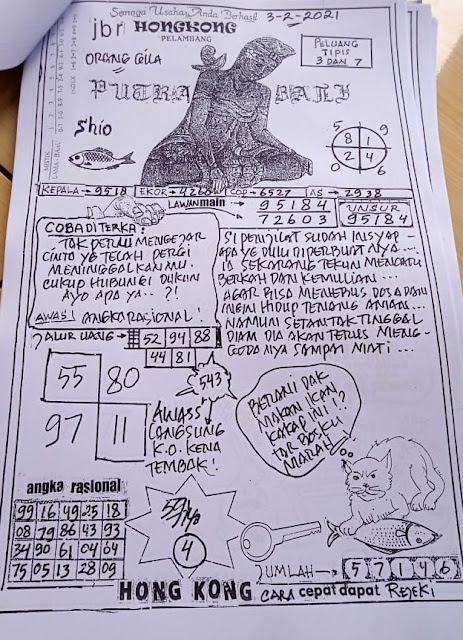 Semoga Usaha Anda Berhasil
3-2-2021
jbr HONGKONG
PELAMBANG
ORANG GILA
PELUANG
TIPIS
3 DAN 7
PUTRA BALI
Shio
5 9
8 1
2 4
0 6
KEPALA → 9518 EKOR → 4260 COP → 6527 AS → 2938
LAWAN main → 95184
72603
UNSUR
95184
COBA DITERKA :
TAK PERLU MENGEJAR
CINTO YG TELAH PERGI
MENINGGALKANMU.
CUKUP HUBUNGI DUKUN
AYO APA YA.. ?!
AWAS! ANGKA RASIONAL!
SI PENJILAT SUDAH INSYAP -
APA YG DULU DIPERBUATNYA ...
IA SEKARANG TEKUN MENCARI
BERKAH DAN KEMULIAN ...
AGAR BISA MENEBUS DOSA DAN
INGIN HIDUP TENANG AMAN ...
NAMUN SETAN TAK TINGGAL
DIAM DIA AKAN TERUS MENG-
GODANYA SAMPAI MATI ...
JALUR UANG → 52 94 88
44 81
55 80
97 11
543
AWASS
LANGSUNG
K.O. KENA
TEMBAK!
BERANI DAK
MAKAN IKAN
KAKAP INI !?
TAR BOSKU
MARAH
angka rasional
99 16 49 25 18
08 79 86 43 93
34 90 61 04 64
75 05 13 28 09
4
JUMLAH → 5 7 1 4 6
HONG KONG CARA cepat dapat REJEKI